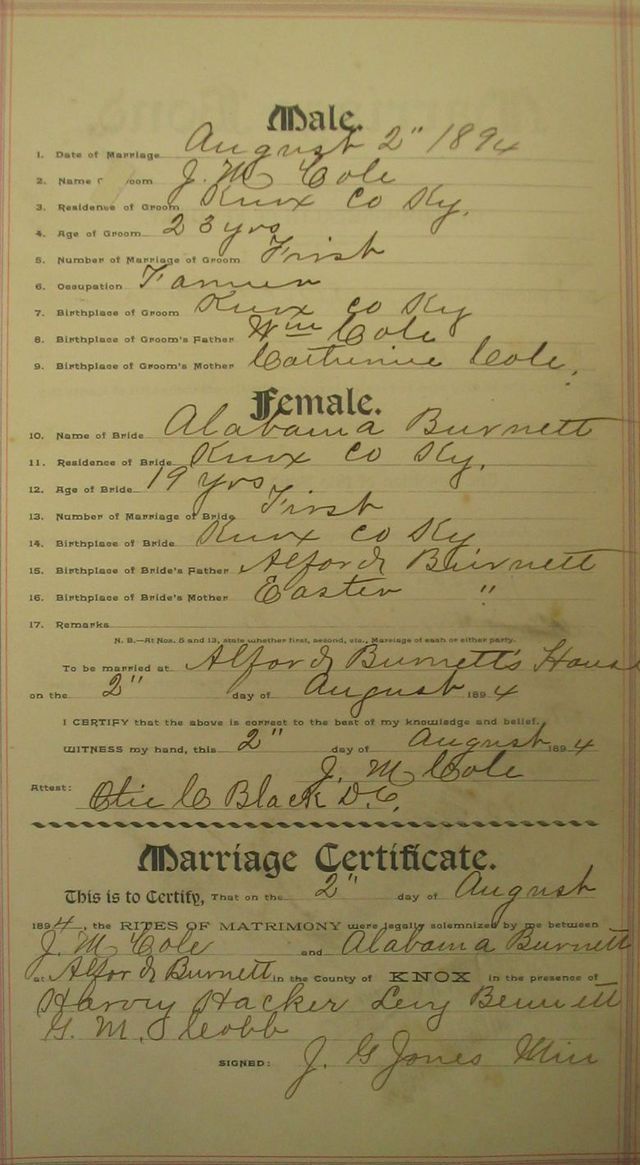 Male.
1. Date of Marriage August 2" 1894
2. Name oom J. M Cole
3. Residence of Groom Knox Co Ky.
4. Age of Groom 23 yrs
5. Number of Marriage of Groom First
6. Occupation Farmer
7. Birthplace of Groom Knox Co Ky
8. Birthplace of Groom's Father Wm Cole
9. Birthplace of Groom's Mother Catherine Cole.
Female.
10. Name of Bride Alabama Burnett
11. Residence of Bride Knox Co Ky.
12. Age of Bride 19 yrs
13. Number of Marriage of Bride First
14. Birthplace of Bride Knox Co Ky
15. Birthplace of Bride's Father Alford Burnett
16. Birthplace of Bride's Mother Easter "
17. Remarks
N. B.—At Nos. 5 and 13, state whether first, second, etc., Marriage of each or either party.
To be married at Alford Burnett's House
on the 2" day of August 1894
I CERTIFY that the above is correct to the best of my knowledge and belief.
WITNESS my hand, this 2" day of August 1894
J. M Cole
Attest: C Black D.C.
Marriage Certificate.
This is to Certify, That on the 2" day of August
1894, the RITES OF MATRIMONY were legally solemnized by me between
J. M Cole and Alabama Burnett
at Alford Burnett in the County of KNOX in the presence of
Harvy Hacker Levy Bennett
G. M. Cobb
SIGNED: J. G Jones Min